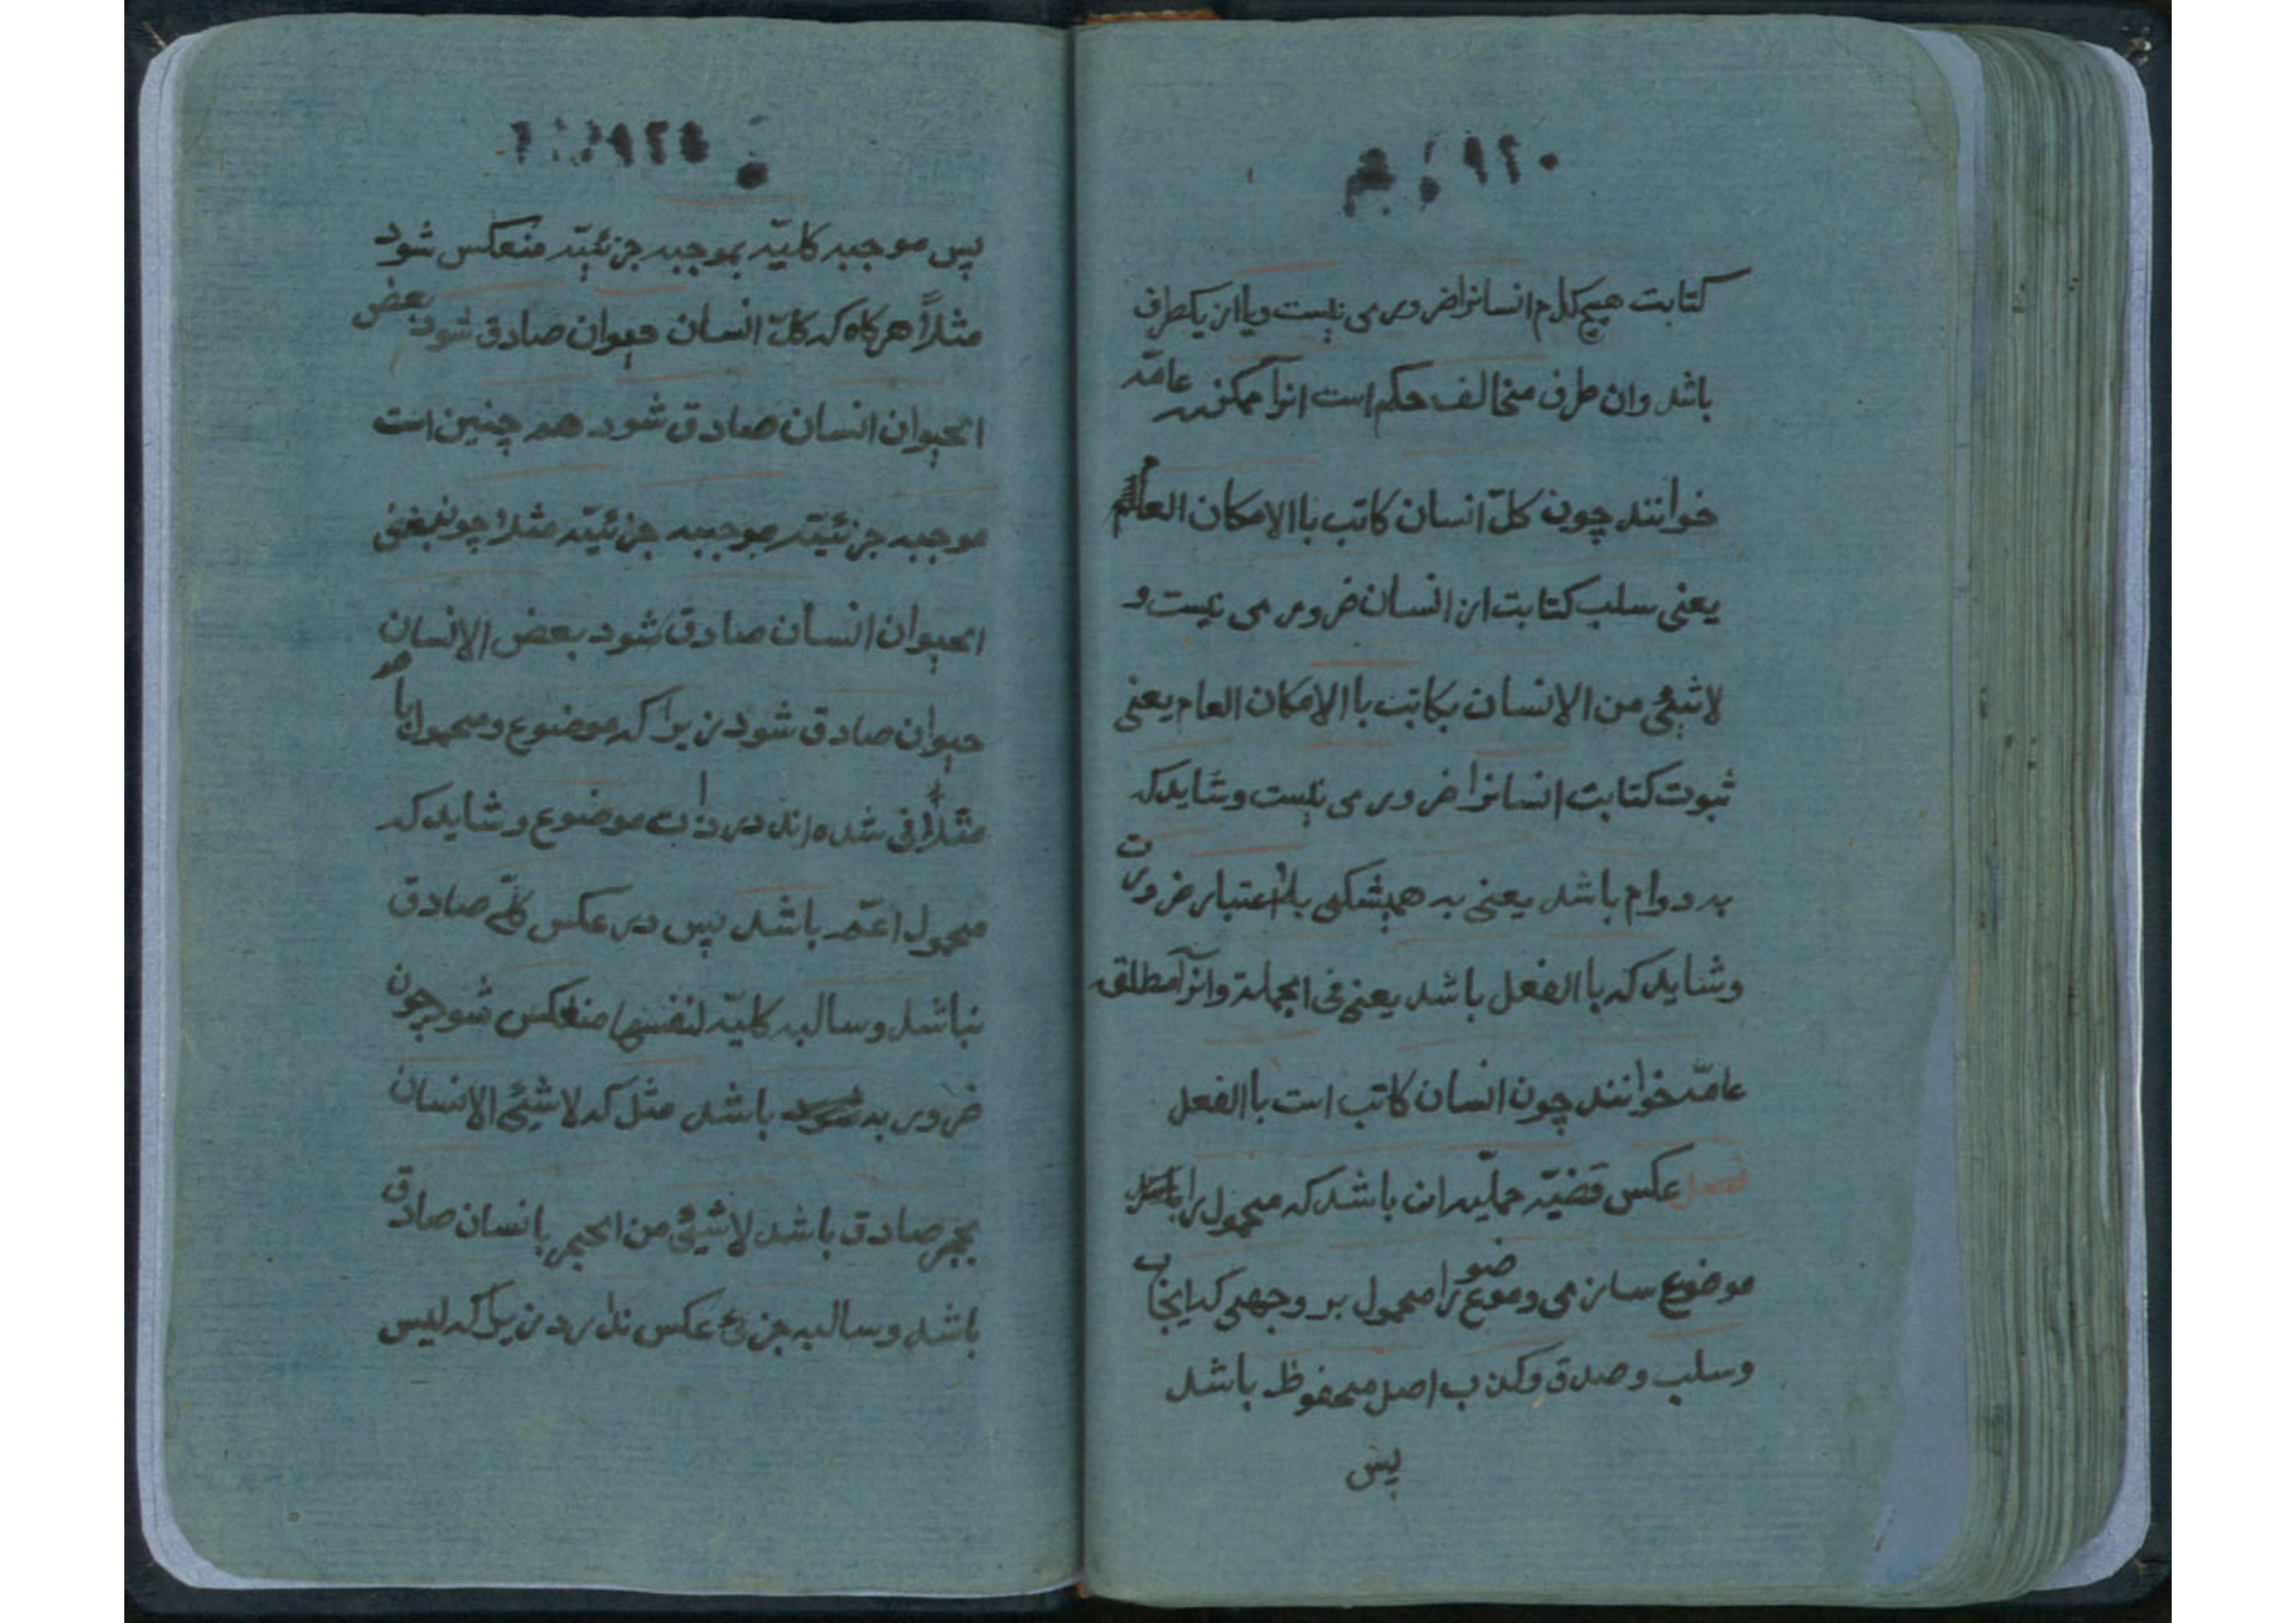 کتابت هیچ کدام انسانرا ضروری نیست ویا از یکطرف
باشد وان طرف مخالف حکم است انرا ممکنه عامّه
خوانند چون کلّ انسان کاتب باالامکان العام
یعنی سلب کتابت از انسان ضروری نیست و
لاشیئ من الانسان بکاتب باالامکان العام یعنی
ثبوت کتابت انسانرا ضروری نیست وشاید که
به دوام باشد یعنی به همیشکی بی اعتبار ضرورت
وشاید که باالفعل باشد یعنی فی الجملة وانرا مطلقه
عامّه خوانند چون انسان کاتب است باالفعل
فصل عکس قضیّه حملیه ان باشد که محمول را
موضوع سازی وموضوع را محمول بر وجهی که ایجاب
وسلب وصدق وکذب اصل محفوظ باشد
پس
پس موجبه کلیّه بموجبه جزئیّه منعکس شود
مثلاً هرکاه که کلّ انسان حیوان صادق شود بعض
الحیوان انسان صادق شود همچنین است
موجبه جزئیّه بموجبه جزئیّه مثلا چون بعض
الحیوان انسان صادق شود بعض الانسان
حیوان صادق شود زیرا که موضوع ومحمول با هم
ملاقی شده اند در ذات موضوع وشاید که
محمول اعمّ باشد پس در عکس کلّی صادق
نباشد وسالبه کلیّه لنفسها منعکس شود چون
ضروریه باشد مثل که لاشیئ الانسان
بحجر صادق باشد لاشیئ من الحجر بانسان صادق
باشد وسالبه جزئی عکس ندارد زیرا که لیس